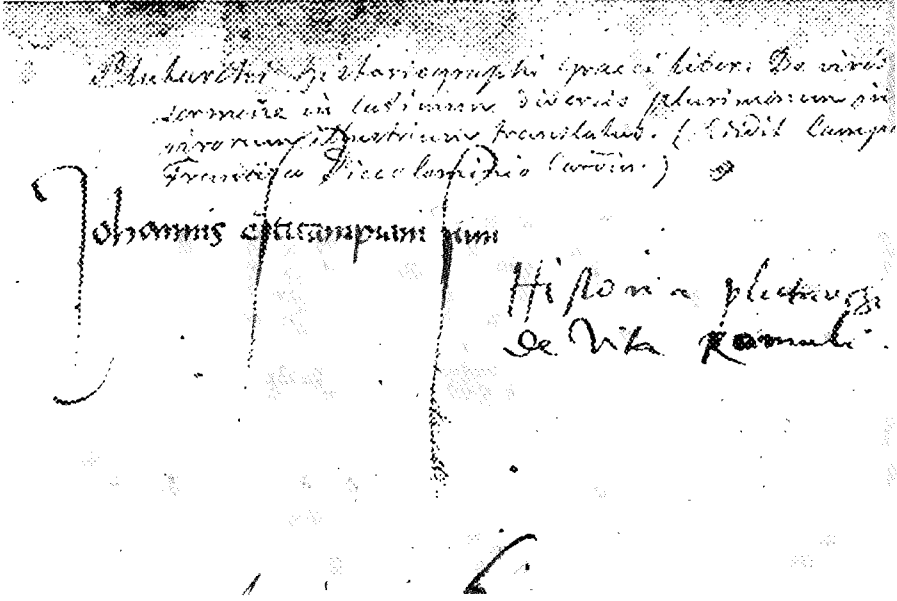 Plutarchi historiographi graeci liber: De viris
sermone in latinum diversis plurimorum in
virorum illustrium translatus. (Edidit Campa
Francisco Piccolominio Cardin.)
Johannis esticampiani sum
Historia plutarchi
de Vita Romuli.